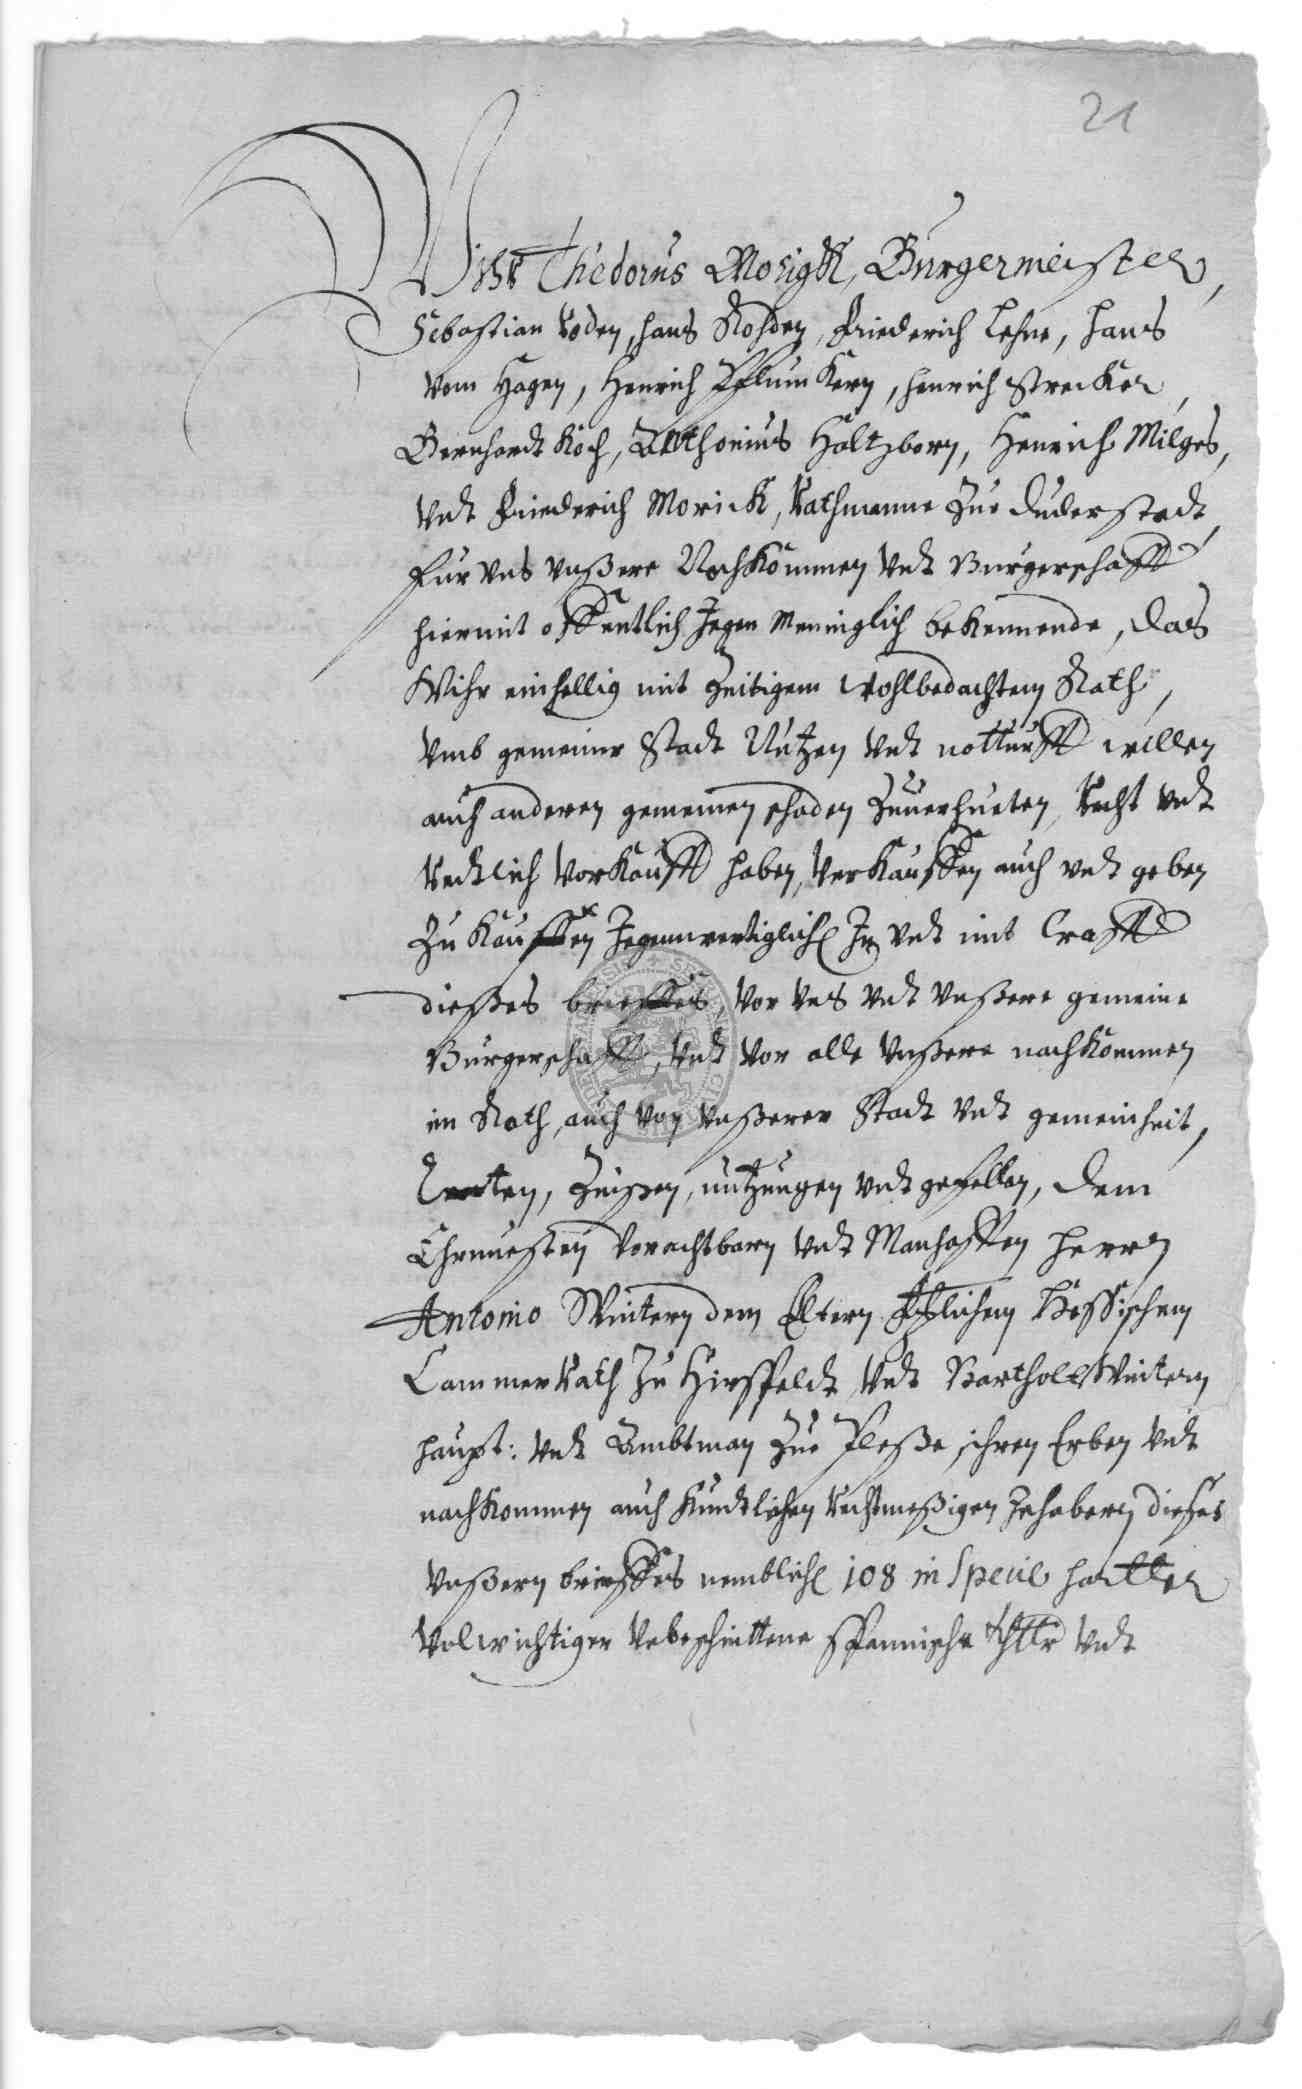 21
Wihr Thedorus Morigkk, Burgermeister,
Sebastian Roden, Hans Rohden, Friederich Lehne, Hans
vom Hagen, Henrich Pflumkern, Henrich Strecker,
Bernhardt Koch, Anthonius Holtzborn, Henrich Milges,
vndt Friederich Morick, Rathmanne Zue Duderstadt,
für vns vnßere Nachkommen vndt Burgerschafft
hiermit offentlich Jegen Menniglich bekennende, das
Wihr einhellig mit Zeitigem wohlbedachtem Rath,
vmb gemeiner Stadt Nutzen vndt notturfft willen
auch anderen gemeinen schaden Zuuerhueten, Recht vndt
Redtlich vorkaufft haben, verkauffen auch vndt geben
Zu Kauffen Jegenwertiglich In vndt mit Crafft
dießes brieffes, vor vns vndt vnßere gemeine
Burgerschafft, vndt vor alle vnßere nachkommen
im Rath, auch von vnßerer Stadt vndt gemeinheit,
Renten, Zeinßen, nutzungen vndt gefellen, dem
Ehrnuesten Vorachtbarn vndt Manhafften Herrn
Antonio Wintern dem Eltern Fstlichem Hessischem
CammerRath Zu Hirspfeldt vndt Barthold Wintern
haupt: vndt Ambtman Zue Pleße, ihren Erben vndt
nachkommen auch Kundtlichen Rechtmeßigen Inhabern dießes
vnßern brieffes nemblich 108 in Specie hartter
volwichtiger vnbeschnittene Spannische thlr vndt